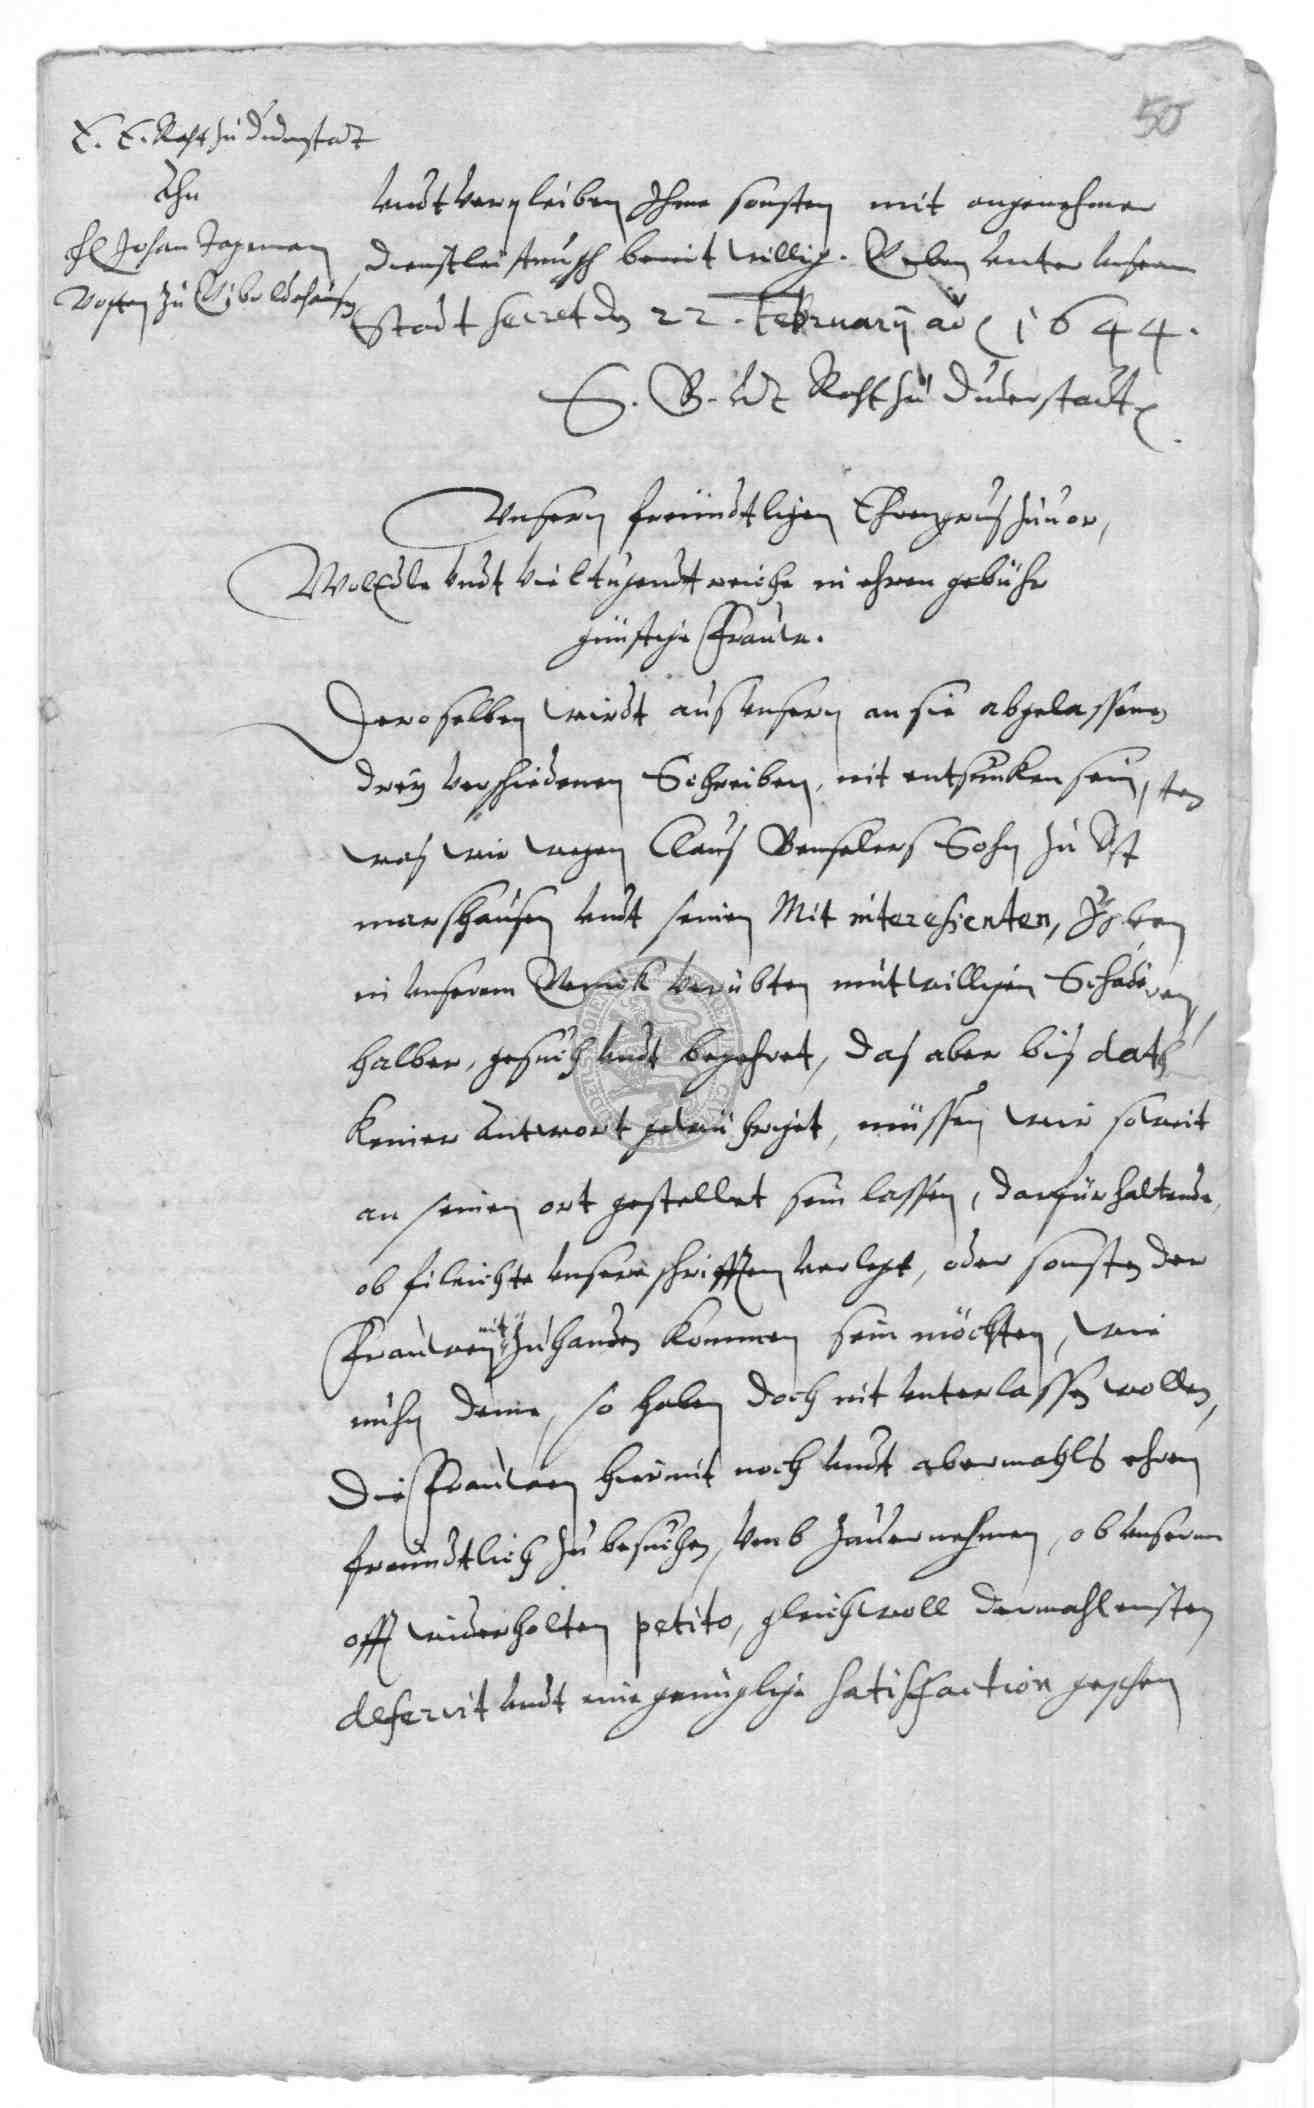 50
E. E. Raht zu Duderstat
Ahn
H Johan Jageman
Vogten zu Giboldehausen
undt verpleiben Ihme sonsten mit angenehmer
dienstleistung bereit willig. Geben unter unserm
Stadt secret den 22. February ao 1644.
B. Undt Raht zu Duderstadt
Unsern freundtlichen Ehrengrus zuuor,
WolEdle undt vieltugendtreiche in ehren gebühr
günstige Frauw.
Deroselben wirdt aus unsern an sie abgelassenen
drey verschiedenen Schreiben, nit entsunken sein,
was wir wegen Claus Sohn zu
marshausen undt seinen Mit interessenten,
in unserem verübten mutwilligen Schadens
halber, gesucht undt begehret, das aber bis dato
keiner Antwort gewürdiget, müssen wir soweit
an seinen ort gestellet sein lassen, darfür haltende,
ob fileichte unsere schrifften verlegt, oder sonsten der
Frauwen nit zuhanden kommen sein möchten, wie
nuhn deme, so haben doch nit unterlassen wollen,
Die Frauwen hiermit noch undt abermahls ehren
freundtlich zu besuchen, umb zuuernehmen, ob unserm
offt widerholten petito, gleichwoll dermahleinsten
deferirt undt eine genügliche satisfaction geschehen